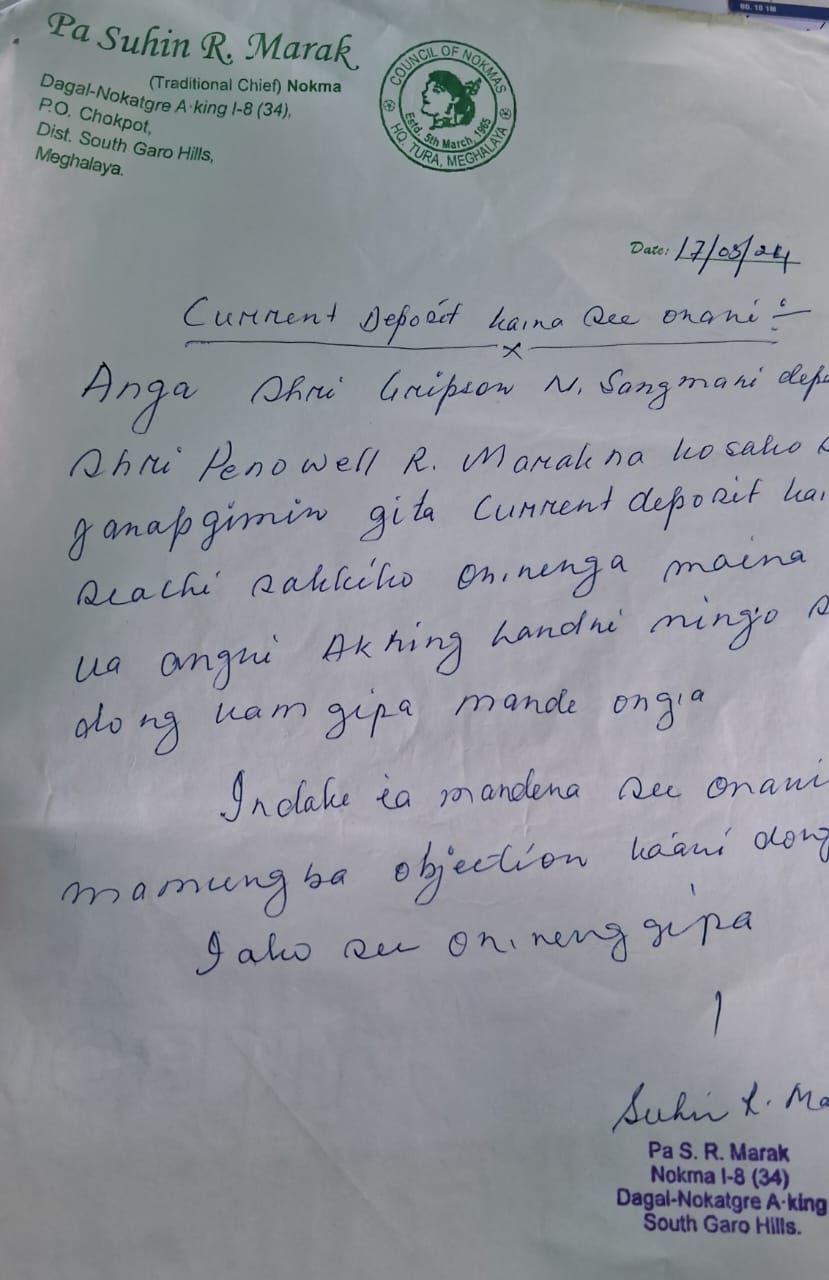 NO. 10 1M
Pa Suhin R. Marak
(Traditional Chief) Nokma
Dagal-Nokatgre A·king I-8 (34),
P.O. Chokpot,
Dist. South Garo Hills,
Meghalaya.
COUNCIL OF NOKMAS
Estd. 5th March, 1965
HQ. TURA, MEGHALAYA
Date: 17/05/24
Current Deposit kaina see onani :-
Anga Shri Gripson N. Sangmani depo
Shri Penowell R. Marakna kosako
ganapgimin gita Current deposit ka
seachi sakkiko on.nenga maina
ua angni Akhing Landni ningo
dong kam gipa mande ong.a
Indake ia mandena see onani
mamungba objection kaani dong
Iako see on.neng gipa
Suhin R. Ma
Pa S. R. Marak
Nokma I-8 (34)
Dagal-Nokatgre A·king
South Garo Hills.